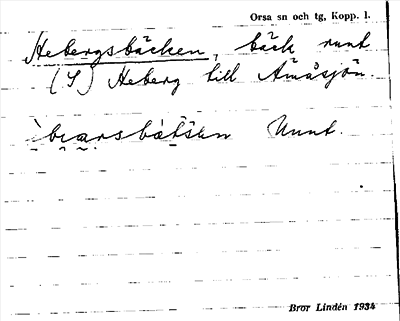 Orsa sn och tg, Kopp. l.
Hebergsbäcken, bäck runt
(S) Heberg till Åmåsjön.
Unnt.
Bror Lindén 1934